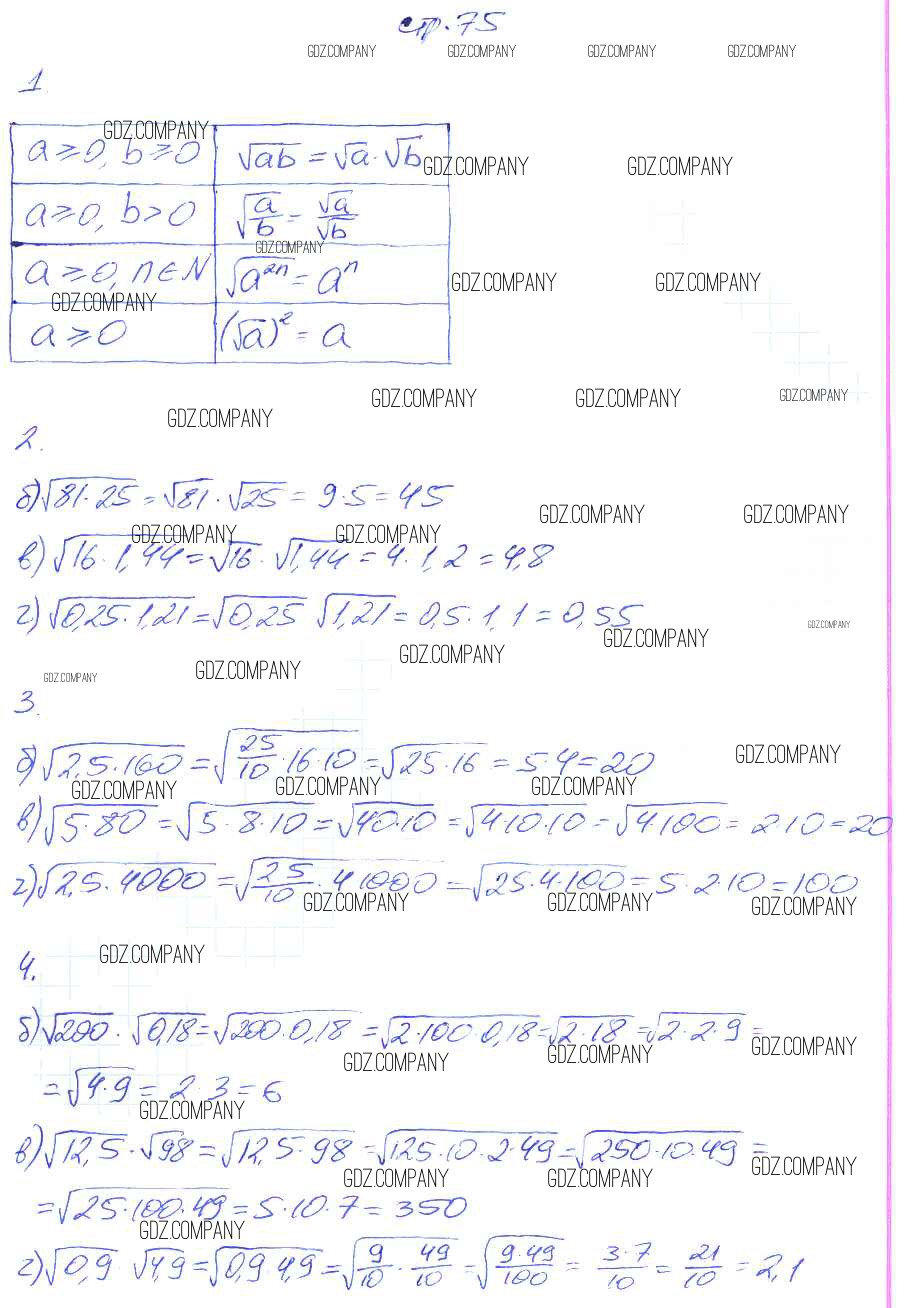 стр. 75
GDZ.COMPANY GDZ.COMPANY GDZ.COMPANY GDZ.COMPANY
1.
GDZ.COMPANY
a ≥ 0, b ≥ 0 √ab = √a · √b
GDZ.COMPANY GDZ.COMPANY
a ≥ 0, b > 0 √(a/b) = √a/√b
GDZ.COMPANY
a ≥ 0, n ∈ N √(a²ⁿ) = aⁿ
GDZ.COMPANY GDZ.COMPANY
GDZ.COMPANY
a ≥ 0 (√a)² = a
GDZ.COMPANY GDZ.COMPANY GDZ.COMPANY
GDZ.COMPANY
2.
б) √(81·25) = √81 · √25 = 9·5 = 45
GDZ.COMPANY GDZ.COMPANY
GDZ.COMPANY GDZ.COMPANY
в) √(16·1,44) = √16 · √1,44 = 4·1,2 = 4,8
г) √(0,25·1,21) = √0,25 √1,21 = 0,5·1,1 = 0,55
GDZ.COMPANY
GDZ.COMPANY
GDZ.COMPANY
GDZ.COMPANY GDZ.COMPANY
3.
б) √(2,5·160) = √(25/10·16·10) = √(25·16) = 5·4 = 20
GDZ.COMPANY
GDZ.COMPANY GDZ.COMPANY GDZ.COMPANY
в) √(5·80) = √(5·8·10) = √(40·10) = √(4·10·10) = √(4·100) = 2·10 = 20
г) √(2,5·4000) = √(25/10·4·1000) = √(25·4·100) = 5·2·10 = 100
GDZ.COMPANY GDZ.COMPANY GDZ.COMPANY
GDZ.COMPANY
4.
б) √200 · √0,18 = √(200·0,18) = √(2·100·0,18) = √(2·18) = √(2·2·9) =
GDZ.COMPANY GDZ.COMPANY GDZ.COMPANY
= √(4·9) = 2·3 = 6
GDZ.COMPANY
в) √12,5 · √98 = √(12,5·98) = √(125·10·2·49) = √(250·10·49) =
GDZ.COMPANY GDZ.COMPANY GDZ.COMPANY
= √(25·100·49) = 5·10·7 = 350
GDZ.COMPANY
г) √0,9 · √4,9 = √(0,9·4,9) = √(9/10·49/10) = √(9·49/100) = 3·7/10 = 21/10 = 2,1